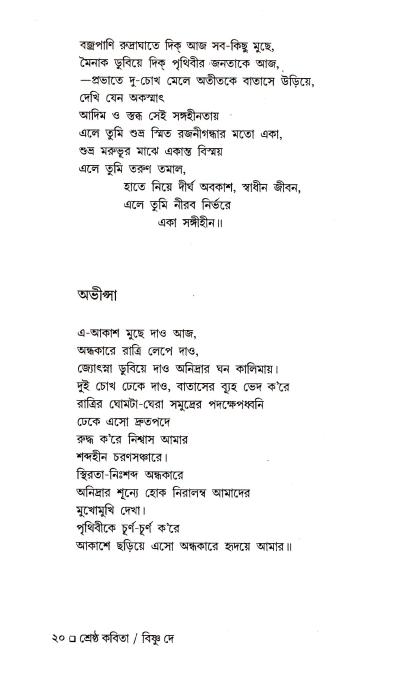 বজ্রপাণি রুদ্রাঘাতে দিক্ আজ সব-কিছু মুছে,
মৈনাক ডুবিয়ে দিক্ পৃথিবীর জনতাকে আজ,
—প্রভাতে দু-চোখ মেলে অতীতকে বাতাসে উড়িয়ে,
দেখি যেন অকস্মাৎ
আদিম ও স্তব্ধ সেই সঙ্গহীনতায়
এলে তুমি শুভ্র স্মিত রজনীগন্ধার মতো একা,
শুভ্র মরুভূর মাঝে একান্ত বিস্ময়
এলে তুমি তরুণ তমাল,
হাতে নিয়ে দীর্ঘ অবকাশ, স্বাধীন জীবন,
এলে তুমি নীরব নির্ভরে
একা সঙ্গীহীন॥
অভীপ্সা
এ-আকাশ মুছে দাও আজ,
অন্ধকারে রাত্রি লেপে দাও,
জ্যোৎস্না ডুবিয়ে দাও অনিদ্রার ঘন কালিমায়।
দুই চোখ ঢেকে দাও, বাতাসের ব্যূহ ভেদ ক'রে
রাত্রির ঘোমটা-ঘেরা সমুদ্রের পদক্ষেপধ্বনি
ঢেকে এসো দ্রুতপদে
রুদ্ধ ক'রে নিশ্বাস আমার
শব্দহীন চরণসঞ্চারে।
স্থিরতা-নিঃশব্দ অন্ধকারে
অনিদ্রার শূন্যে হোক নিরালম্ব আমাদের
মুখোমুখি দেখা।
পৃথিবীকে চূর্ণ-চূর্ণ ক'রে
আকাশে ছড়িয়ে এসো অন্ধকারে হৃদয়ে আমার॥
২০ □ শ্রেষ্ঠ কবিতা / বিষ্ণু দে